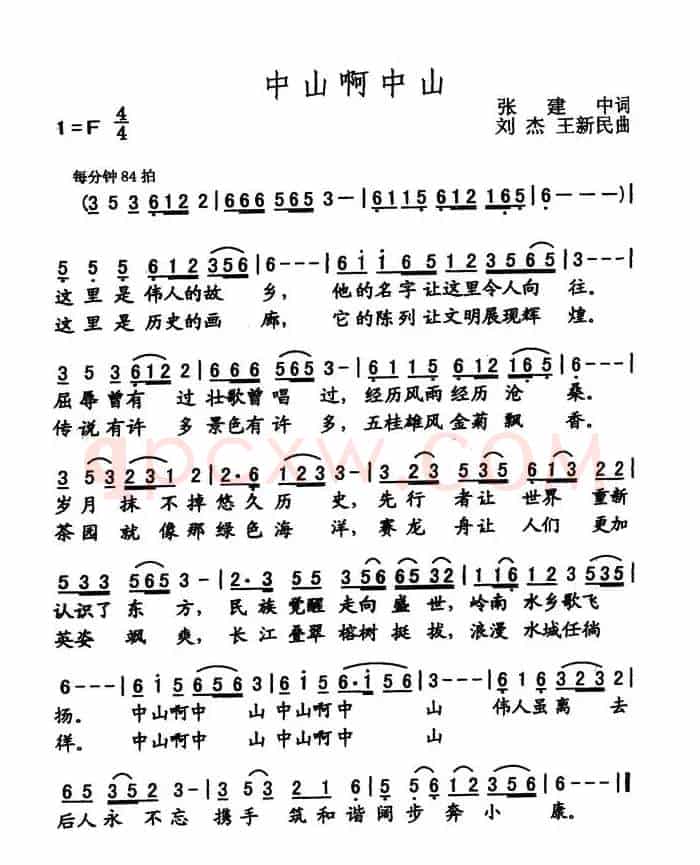 中山啊中山
1=F 4/4
张建中词
刘杰 王新民曲
每分钟84拍
(3 5 3 612 2 | 666 565 3 - | 6115 612 165 | 6 - - - ) |
5 5 5 612 356 | 6 - - - | 6i i6 5 12 35 | 3 - - - |
这里是伟人的故乡， 他的名字让这里令人向往。
这里是历史的画廊， 它的陈列让文明展现辉煌。
3 5 3 612 2 | 666 565 3 - | 6115 612 165 | 6 - - - |
屈辱曾有过壮歌曾唱过，经历风雨经历沧桑。
传说有许多景色有许多，五桂雄风金菊飘香。
3 53 231 2 | 2·6 123 3 - | 323 535 613 22 |
岁月抹不掉悠久历史，先行者让世界重新
茶园就像那绿色海洋，赛龙舟让人们更加
533 565 3 - | 2·3 555 356 6532 | 1116 123 535 |
认识了东方，民族觉醒走向盛世，岭南水乡歌飞
英姿飒爽，长江叠翠榕树挺拔，浪漫水城任徜
6 - - - | 6i5 656 3 - | 6i5 6·i56 3 - | 3 - - - | 612 23 5 |
扬。 中山啊中山 中山啊中山 伟人虽离去
徉。 中山啊中山 中山啊中山
65 352 3 - | 3 53 21 6 | 2 12 356 | 6 - - - ‖
后人永不忘携手筑和谐阔步奔小康。